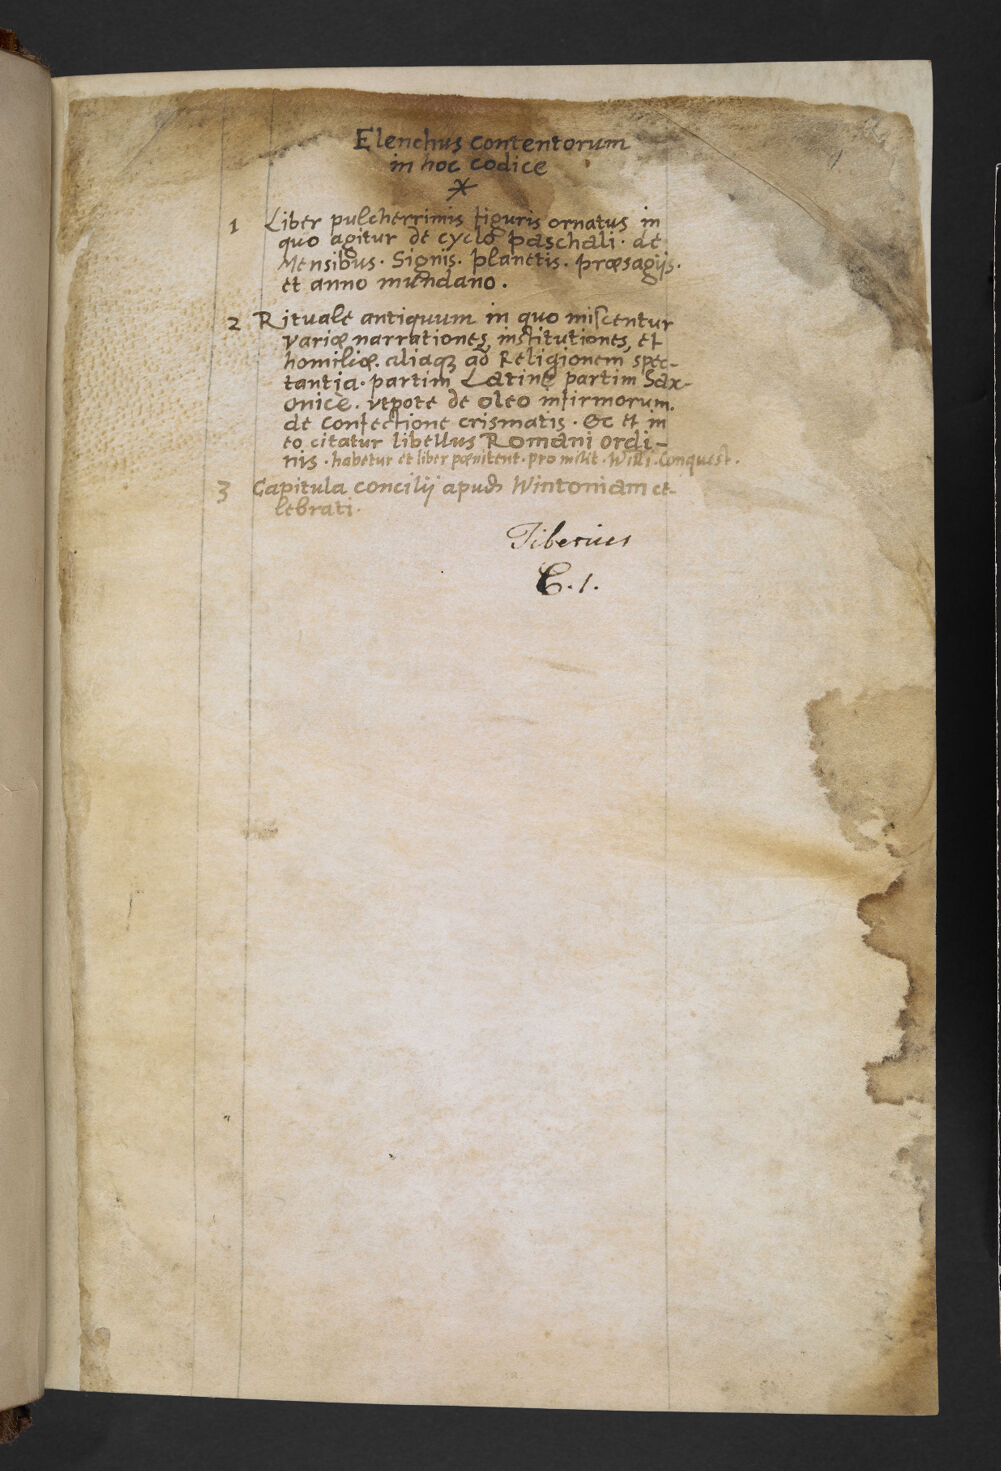 Elenchus contentorum
in hoc codice
1 Liber pulcherrimis figuris ornatus in
quo agitur de cyclo paschali. de
Mensibus. Signis. planetis. præsagijs.
et anno mundano.
2 Rituale antiquum in quo miscentur
variæ narrationes, institutiones, et
homiliæ. aliaqꝫ ad Religionem spec-
tantia. partim Latine partim Sax-
onicè. vtpote de oleo infirmorum.
de confectione crismatis. &c et in
eo citatur libellus Romani ordi-
nis. habetur et liber pœnitent. pro milit. Willi. Conquest.
3 Capitula concilij apud Wintoniam ce-
lebrati.
Tiberius
C.1.